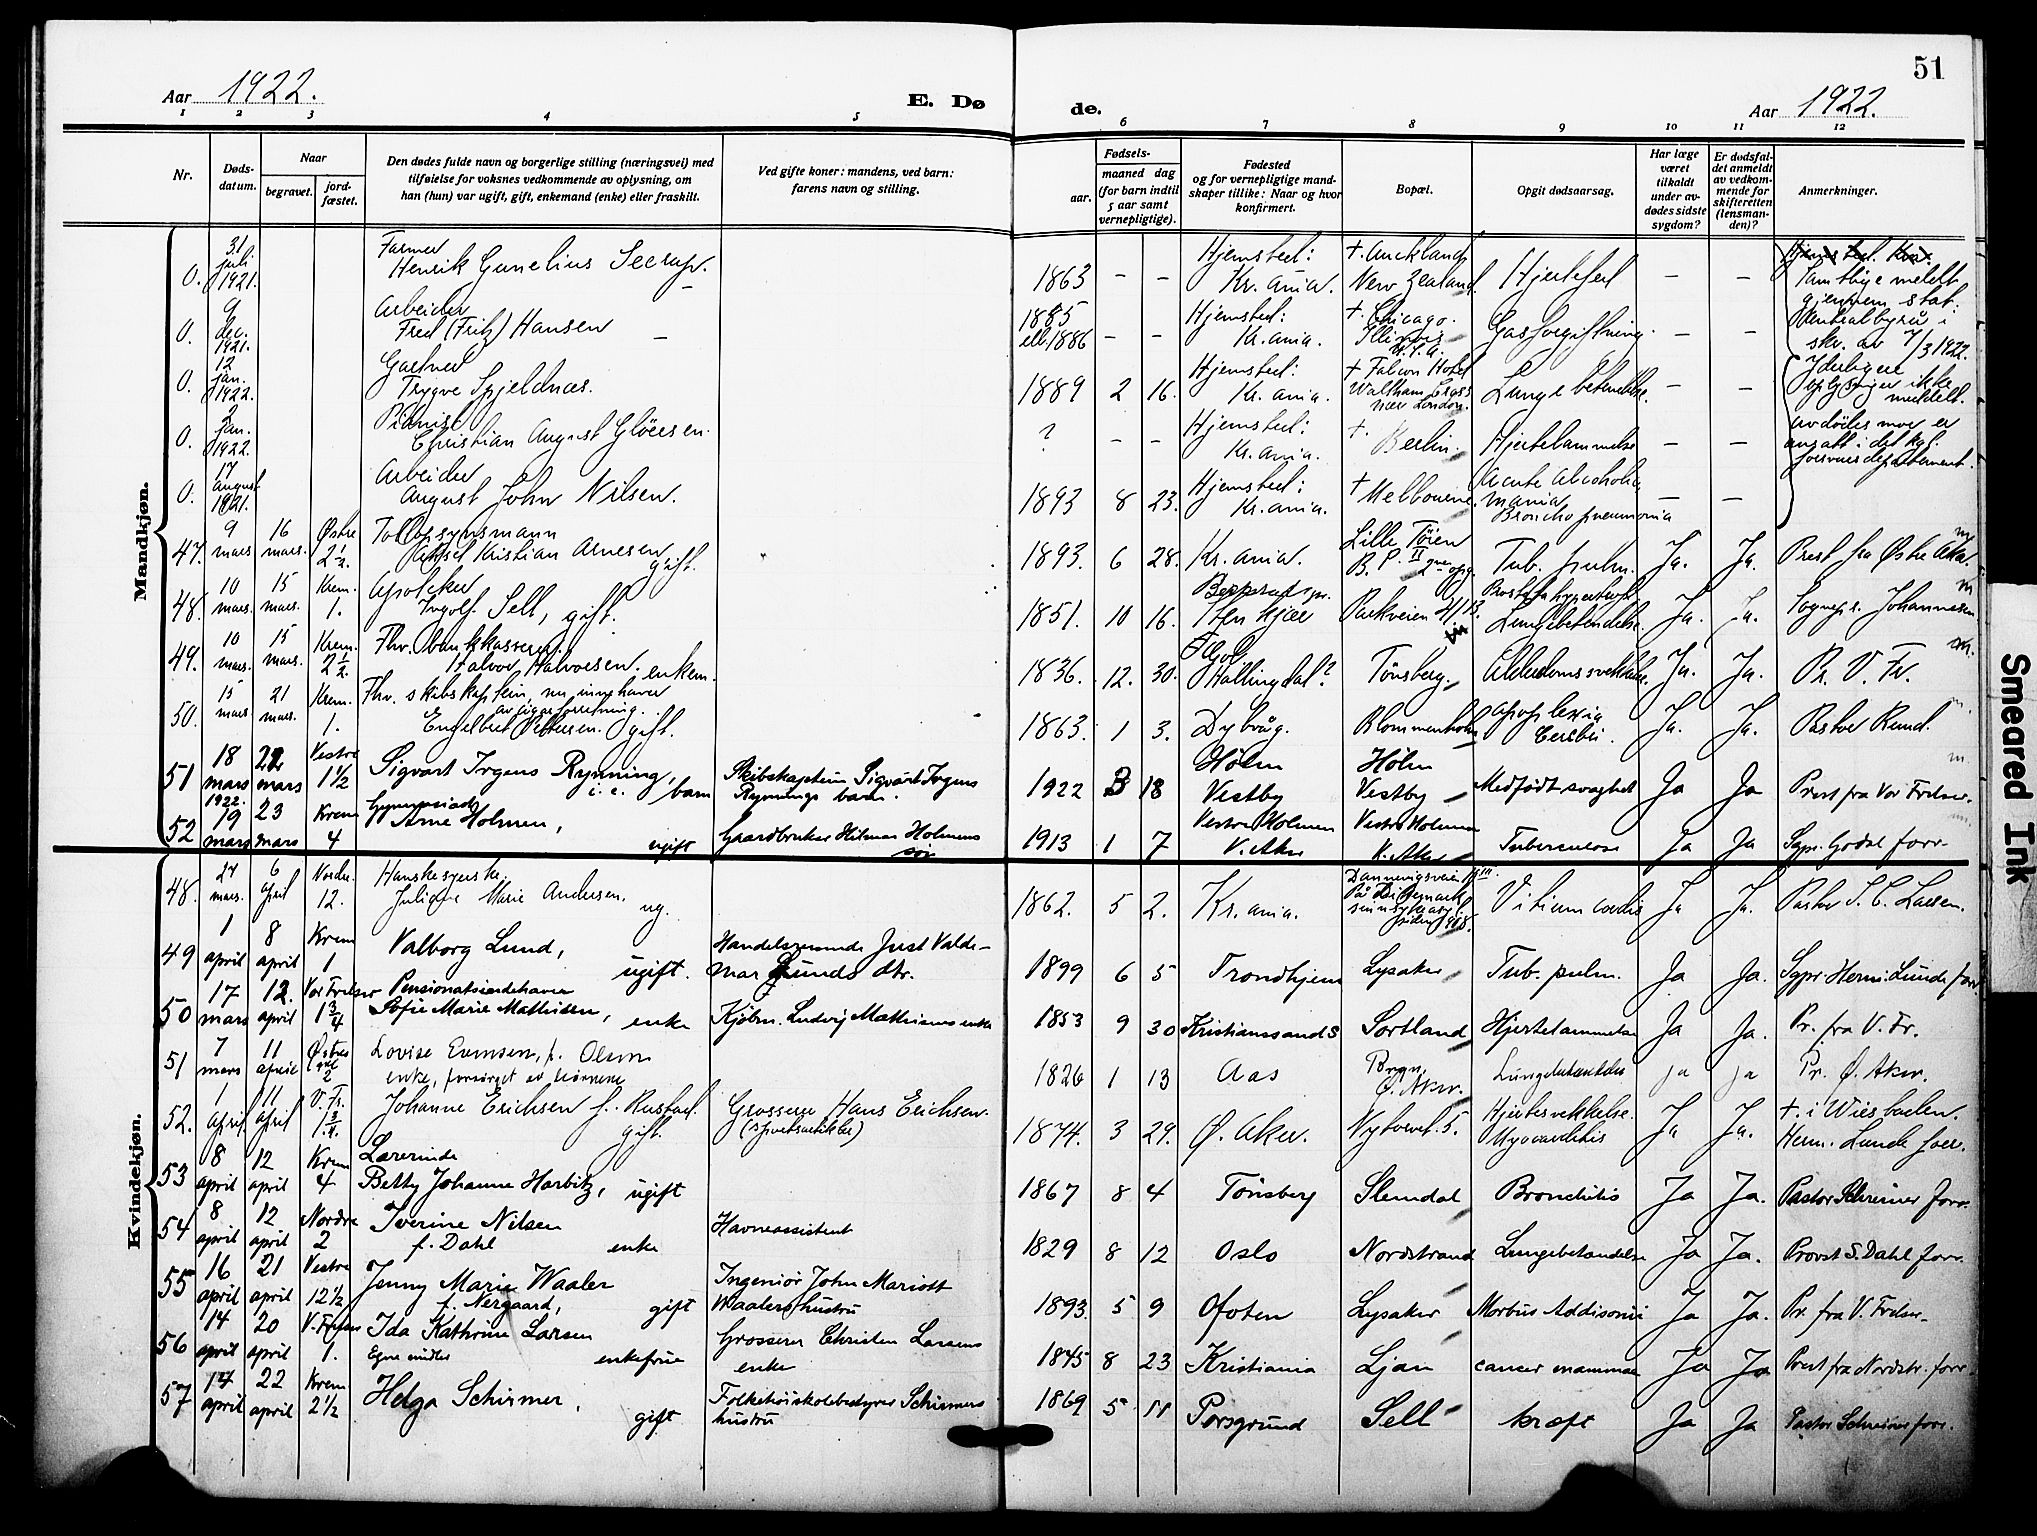 51
Aar 1922.
E. Dø
de.
Aar 1922.
1 2 3 4 5 6 7 8 9 10 11 12
Nr.
Døds-
datum.
Naar
begravet.
jord-
fæstet.
Den dødes fulde navn og borgerlige stilling (næringsvei) med
tilføielse for voksnes vedkommende av oplysning, om
han (hun) var ugift, gift, enkemand (enke) eller fraskilt.
Ved gifte koner: mandens, ved barn:
farens navn og stilling.
Fødsels-
aar.
maaned dag
(for barn indtil
5 aar samt
vernepligtige).
Fødested
og for vernepligtige mand-
skaper tillike: Naar og hvor
konfirmert.
Bopæl.
Opgit dødsaarsag.
Har læge
været
tilkaldt
under av-
dødes sidste
sygdom?
Er dødsfal-
det anmeldt
av vedkom-
mende for
skifteretten
(lensman-
den)?
Anmerkninger.
Mandkjøn.
0. 31 juli 1921. Farmer
Henrik Gunelius — 1863 — — Hjemsted: Kr.ania. + Auckland, New Zealand. Hjertefeil — —
Samtlige meldt
gjennem stat.
sentralbyrå i
skr. av 7/3 1922.
0. 9 dec. 1921. Arbeider
Fred (Fritz) Hansen — 1885 ell. 1886 — — Hjemsted: Kr.ania. + Chicago. Illinois U.S.A. Gasforgiftning. — —
Yderligere
oplysninger ikke
meddelt.
0. 12 jan. 1922. Gartner
Trygve Spjeldnæs. 1889 2 16. Hjemsted: Kr.ania. + Falcon Hotel Waltham Cross nær London. Lungebetændelse. — —
0. 2 jan. 1922. Pianist
Christian August Gløersen. ? — — Hjemsted: Kr.ania. + Berlin. Hjertelammelse — —
avdødes mor er
ansatt i det kgl.
forsvarsdepartement.
0. 17 august 1921. Arbeider
August John Nilsen. 1893 8 23. Hjemsted: Kr.ania. + Melbourne. Acute Alcoholic mania Broncho pneumonia — —
47. 9 mars 16 mars. Østre 2 1/2. Toldopsynsmann
Aksel Kristian Arnesen gift. 1893. 6 28. Kr.ania. Lille Tøien B. P. II Tub. pulm. Ja. Ja. Prest fra Østre Aker.
48. 10 mars. 15 mars. Krem. 1. Apoteker
Ingolf Sell, gift. 1851. 10 16. Stenkjær Parkveien Lungebetændelse. Ja. Ja. Sognepr. Johannesen
49. 10 mars. 15 mars. Krem. 2 1/2. Fhv. bankkasserer
Halvor Halvorsen. enkem. 1836. 12. 30. Hallingdal? Tønsberg. Alderdomssvekkelse. Ja. Ja. Pr. V. Fr.
50. 15 mars 21 mars. Krem. 1. Fhv. skibskaptein, nu innehaver
av cigarforretning.
Engelbret Pettersen. gift. 1863. 1 3. Dybvåg. Blommenholm Apoplexia Cerebri. Ja. Ja. Pastor Rund.
51 18 mars 1922. 22 mars Vestre 1 1/2 Sigvart Irgens Rynning, barn Skibskaptein Sigvart Irgens
Rynnings barn. 1922 3 18 Hølen Vestby Hølen Vestby Medfødt svaghet Ja Ja Prest fra Vor Frelser.
52 19 mars 23 mars Krem 4 Gymnasiast
Arne Holmen, ugift Gaardbruker Hilmar Holmens
søn 1913 1 7 Vestre Holmen V. Aker Vestre Holmen V. Aker Tuberculose Ja Ja Sgpr. Godal forr.
Kvindekjøn.
48. 27 mars. 6 april Nordre. 12. Hanskesyerske.
Juliane Marie Andersen. ug. 1862. 5 2. Kr.ania. Dannevigsveien Vitium cordis Ja Ja. Pastor S. C. Larsen.
49 1 april 8 april Krem 1 Valborg Lund, ugift. Handelsreisende Just Valde-
mar Lunds dtr. 1899 6 5 Trondhjem Lysaker Tub. pulm. Ja Ja. Sgpr. Herm. Lunde forr.
50 17 mars 12. april Vor Frelser 1 3/4 Pensionatsindehaver
Sofie Marie Mathisen, enke Kjøbm. Ludvig Mathisens enke 1853 9 30 Kristianssand S Sortland Hjertelammelse Ja Ja. Pr. fra V. Fr.
51 7 mars 11 april Østre 2 Lovise Evensen, f. Olsen
enke, forsørget av børnene 1826 1 13 Aas Ø. Aker. Lungebetændelse ja ja Pr. Ø. Aker.
52. 1 april 11 april V. Fr. 1 3/4. Johanne Erichsen f. Rustad.
gift. Grosserer Hans Erichsen.
1874. 3 29. Ø. Aker. Nytorvet. 5. Hjertesvekkelse. Myocarditis Ja Ja. +. i Wiesbaden.
Herm. Lunde forr.
53 8 april 12 april Krem 4 Lærerinde
Betty Johanne Harbitz, ugift 1867 8 4 Tønsberg Slemdal Bronchitis Ja Ja. Pastor Schreiner forr.
54 8 april 12 april Nordre 2 Iverine Nilsen
f. Dahl enke Havneassistent 1829 8 12 Oslo Nordstrand Lungebetændelse Ja Ja. Provst S. Dahl forr.
55 16 april 21 april Vestre 12 1/2 Jenny Marie Waaler
f. Nergaard, gift Ingeniør John Mariott
Waalers hustru 1893. 5 9 Ofoten Lysaker Morbus Addisonii Ja Ja. Pr. fra V. Frelser
56 14 april 20 april V. Frelser 1. Ida Kathrine Larsen
Egne midler enkefrue Grosserer Christen Larsens
enke 1845 8 23 Kristiania Ljan cancer mammae Ja Ja Prest fra Nordstr. forr.
57 14 april 22 april Krem 2 1/2 Helga Schirmer, gift Folkehøiskolebestyrer Schirmers
hustru 1869 5 11 Porsgrund Sell kræft Ja Ja Pastor Schreiner forr.
Smeared Ink